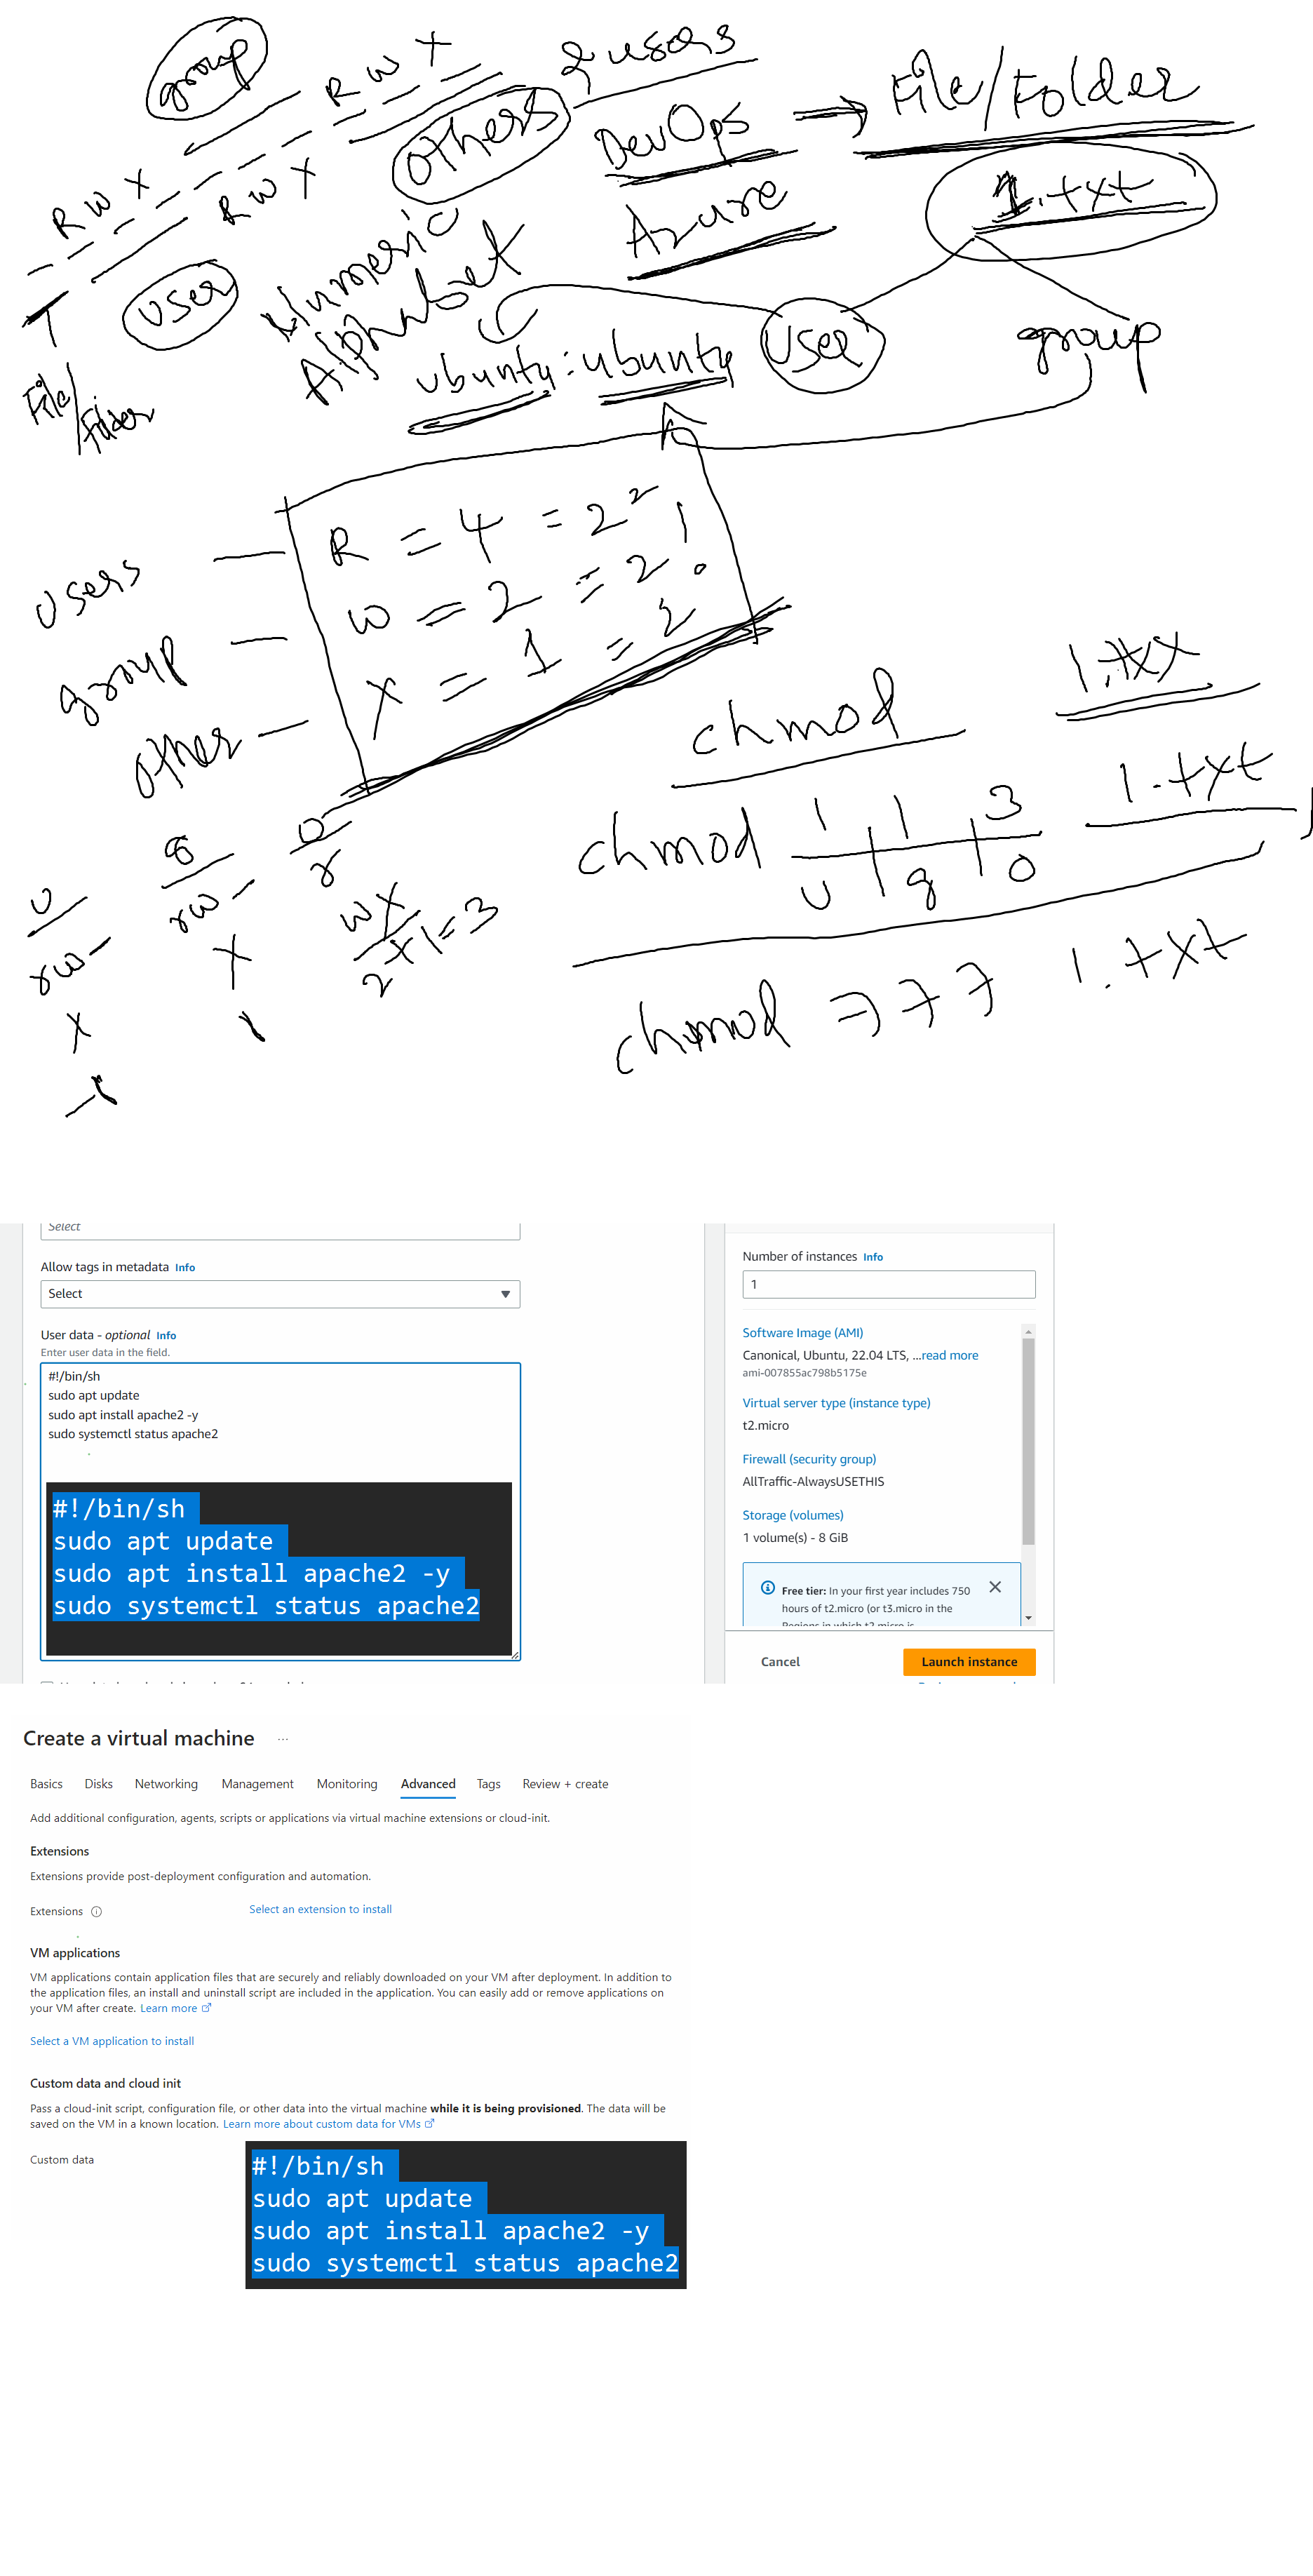 group
R W X
2 users
others
DevOps → File/Folder
R W X
R W X
Azure
1.txt
user
Numeric
Alphabet
File/Folder
ubuntu:ubuntu
user
group
users — R = 4 = 2²
group — W = 2 = 2¹
other — X = 1 = 2⁰
chmod 1.txt
chmod 1 1 3 1.txt
u g o
u g o
rw- rw- r
X X
wx
2+1=3
chmod 777 1.txt
Select
Allow tags in metadata Info
Select
User data - optional Info
Enter user data in the field.
#!/bin/sh
sudo apt update
sudo apt install apache2 -y
sudo systemctl status apache2
#!/bin/sh
sudo apt update
sudo apt install apache2 -y
sudo systemctl status apache2
Number of instances Info
1
Software Image (AMI)
Canonical, Ubuntu, 22.04 LTS, ...read more
ami-007855ac798b5175e
Virtual server type (instance type)
t2.micro
Firewall (security group)
AllTraffic-AlwaysUSETHIS
Storage (volumes)
1 volume(s) - 8 GiB
Free tier: In your first year includes 750
hours of t2.micro (or t3.micro in the
Regions in which t2.micro is
Cancel
Launch instance
Create a virtual machine ...
Basics Disks Networking Management Monitoring Advanced Tags Review + create
Add additional configuration, agents, scripts or applications via virtual machine extensions or cloud-init.
Extensions
Extensions provide post-deployment configuration and automation.
Extensions Select an extension to install
VM applications
VM applications contain application files that are securely and reliably downloaded on your VM after deployment. In addition to
the application files, an install and uninstall script are included in the application. You can easily add or remove applications on
your VM after create. Learn more
Select a VM application to install
Custom data and cloud init
Pass a cloud-init script, configuration file, or other data into the virtual machine while it is being provisioned. The data will be
saved on the VM in a known location. Learn more about custom data for VMs
Custom data
#!/bin/sh
sudo apt update
sudo apt install apache2 -y
sudo systemctl status apache2